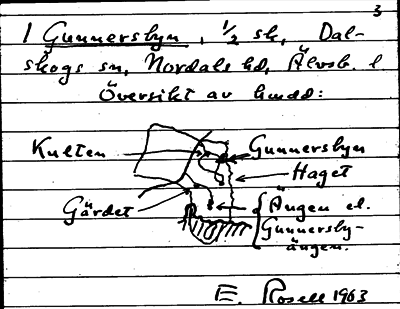 3
1 Gunnersbyn, 1/2 sk, Dal-
skogs sn, Nordals hd, Älvsb. l
Översikt av huvudd:
Kulten
Gunnersbyn
Haget
Gärdet
Ängen el.
Gunnersby-
ängen.
E. Rosell 1963